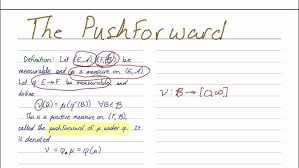 The Pushforward
Definition: Let (E, A), (F, B) be
measurable and μ a measure on (E, A).
Let φ: E → F be measurable and
define
ν(B) = μ(φ⁻¹(B)) ∀B∈B
ν: B → [0,∞]
This is a positive measure on (F, B),
called the pushforward of μ under φ. It
is denoted
ν = φ⁎μ = φ(μ)